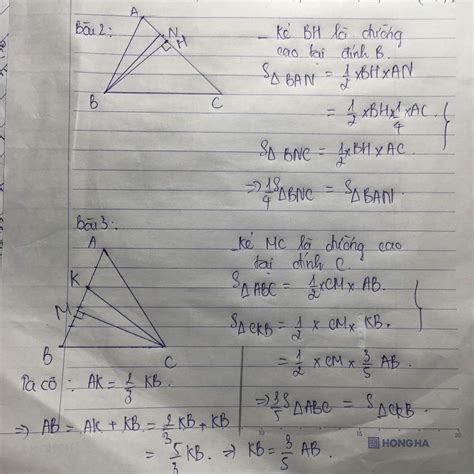 Bài 2:
A
N
H
B
C
- Kẻ BH là đường
cao tại đỉnh B.
S△BAN = 1/2 x BH x AN
= 1/2 x BH x 1/4 x AC.
S△BNC = 1/2 x BH x AC.
=> 1/4 S△BNC = S△BAN.
Bài 3:
A
K
M
B
C
- Kẻ MC là đường cao
tại đỉnh C.
S△ABC = 1/2 x CM x AB.
S△CKB = 1/2 x CM x KB.
= 1/2 x CM x 3/5 AB.
=> 3/5 S△ABC = S△CKB
Ta có: AK = 2/3 KB.
=> AB = AK + KB = 2/3 KB + KB
= 5/3 KB. => KB = 3/5 AB.
HONG HA